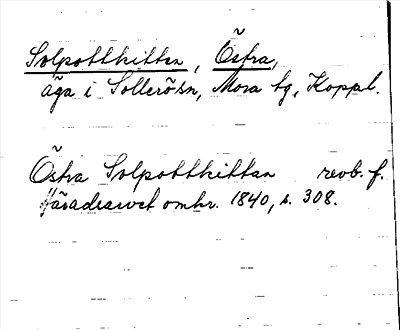 Solpottkittan, Östra,
äga i Sollerö sn, Mora tg, Koppbl.
Östra Solpottkittan revb. f.
Häradsarvet omkr. 1840, s. 308.